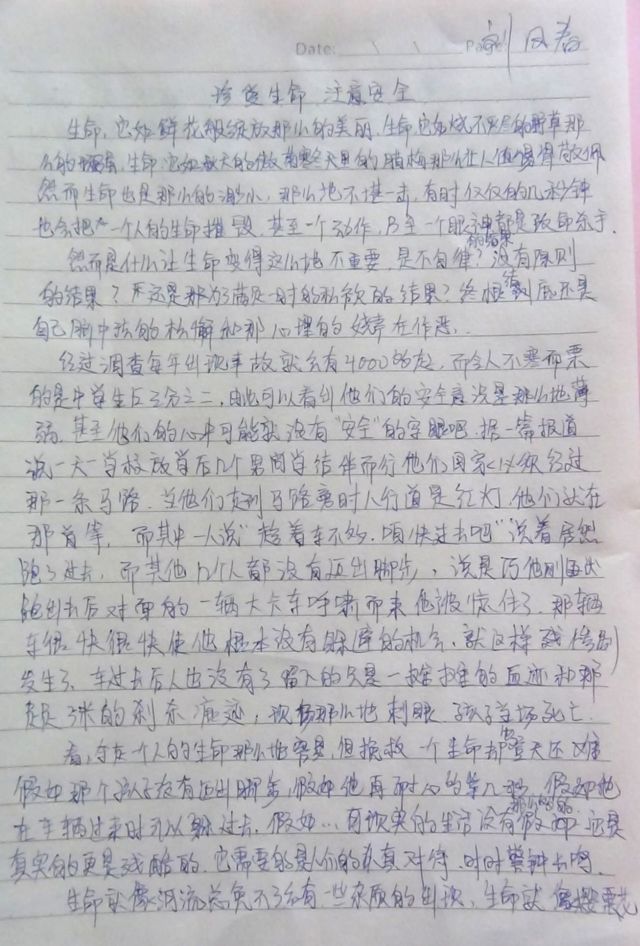 Date: \ \ Page: 刘凤春
珍爱生命 注意安全
生命,它如鲜花般绽放那么的美丽.生命它如烧不尽的野草那
么的顽强,生命它如秋天的傲菊寒冬里的腊梅那么让人值得敬佩
然而生命也是那么的渺小,那么地不堪一击,有时仅仅的几秒钟
也会把一个人的生命摧毁.甚至一个动作,乃至一个眼神都是致命杀手.
然而是什么让生命变得这么地不重要.是不自律?没有原则
的结果
的结果?还是那为了满足一时的私欲的结果?终根结到底还是
自己脑中弦的松懈和那心理的娇弃在作恶.
经过调查每年出现事故就会有4000多起,而令人不寒而栗
的是中学生占三分之二,由此可以看到他们的安全意识是那么地薄
弱.甚至他们的心中可能就没有"安全"的字眼吧.据一篇报道
说一天学校放学后几个男同学结伴而行他们回家必须经过
那一条马路.当他们走到马路旁时人行道是红灯.他们就在
那首等,而其中一人说"趁着车不多.赶快过去吧"说着居然
跑了过去,而其他几个人都没有迈出脚步,说是巧他刚
跑出去后对面的一辆大卡车呼啸而来他被惊住了.那辆
车很快很快使他根本没有躲库的机会.就这样残酷的
发生了.车过去后人也没有了留下的只是一摊摊的血迹和那
起3米的刹车痕迹,现场那么地刺眼.孩子当场死亡.
看,夺走一个人的生命那么地容易,但挽救一个生命却比登天还难
假如那个孩子没有迈出脚步,假如他再耐心的等几秒,假如他
在车辆过来时可以躲过去.假如…可现实的生活没有那么多假如还是
真实的更是残酷的.它需要的是人们的认真对待.时时警钟长鸣.
生命就像河流总免不了会有一些杂质的出现,生命就像樱花